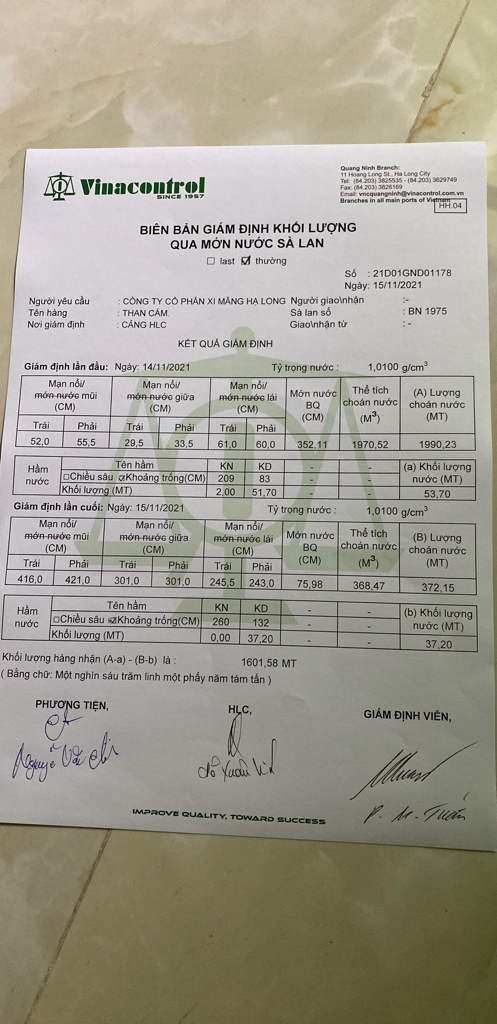 Vinacontrol
SINCE 1957
Quang Ninh Branch:
11 Hoang Long St., Ha Long City
Tel: (84.203) 3825535 - (84.203) 3629749
Fax: (84.203) 3826169
Email: vncquangninh@vinacontrol.com.vn
Branches in all main ports of Vietnam
HH.04
BIÊN BẢN GIÁM ĐỊNH KHỐI LƯỢNG
QUA MỚN NƯỚC SÀ LAN
□ last ☑ thường
Số : 21D01GND01178
Ngày: 15/11/2021
Người yêu cầu : CÔNG TY CỔ PHẦN XI MĂNG HẠ LONG Người giao\nhận :-
Tên hàng : THAN CÁM. Sà lan số : BN 1975
Nơi giám định : CẢNG HLC Giao\nhận từ : -
KẾT QUẢ GIÁM ĐỊNH
Giám định lần đầu: Ngày: 14/11/2021 Tỷ trọng nước : 1,0100 g/cm³
Mạn nổi/ mớn nước mũi (CM) Mạn nổi/ mớn nước giữa (CM) Mạn nổi/ mớn nước lái (CM) Mớn nước BQ (CM) Thể tích choán nước (M³) (A) Lượng choán nước (MT)
Trái Phải Trái Phải Trái Phải
52,0 55,5 29,5 33,5 61,0 60,0 352,11 1970,52 1990,23
Hầm nước Tên hầm KN KD - - (a) Khối lượng nước (MT)
□Chiều sâu ☑Khoảng trống(CM) 209 83 - -
Khối lượng (MT) 2,00 51,70 - - 53,70
Giám định lần cuối: Ngày: 15/11/2021 Tỷ trọng nước : 1,0100 g/cm³
Mạn nổi/ mớn nước mũi (CM) Mạn nổi/ mớn nước giữa (CM) Mạn nổi/ mớn nước lái (CM) Mớn nước BQ (CM) Thể tích choán nước (M³) (B) Lượng choán nước (MT)
Trái Phải Trái Phải Trái Phải
416,0 421,0 301,0 301,0 245,5 243,0 75,98 368,47 372,15
Hầm nước Tên hầm KN KD - - (b) Khối lượng nước (MT)
□Chiều sâu ☑Khoảng trống(CM) 260 132 - -
Khối lượng (MT) 0,00 37,20 - - 37,20
Khối lượng hàng nhận (A-a) - (B-b) là : 1601,58 MT
( Bằng chữ: Một nghìn sáu trăm linh một phẩy năm tám tấn )
PHƯƠNG TIỆN, HLC, GIÁM ĐỊNH VIÊN,
Nguyễn Văn
Đỗ Xuân
P. M. Tuấn
IMPROVE QUALITY, TOWARD SUCCESS